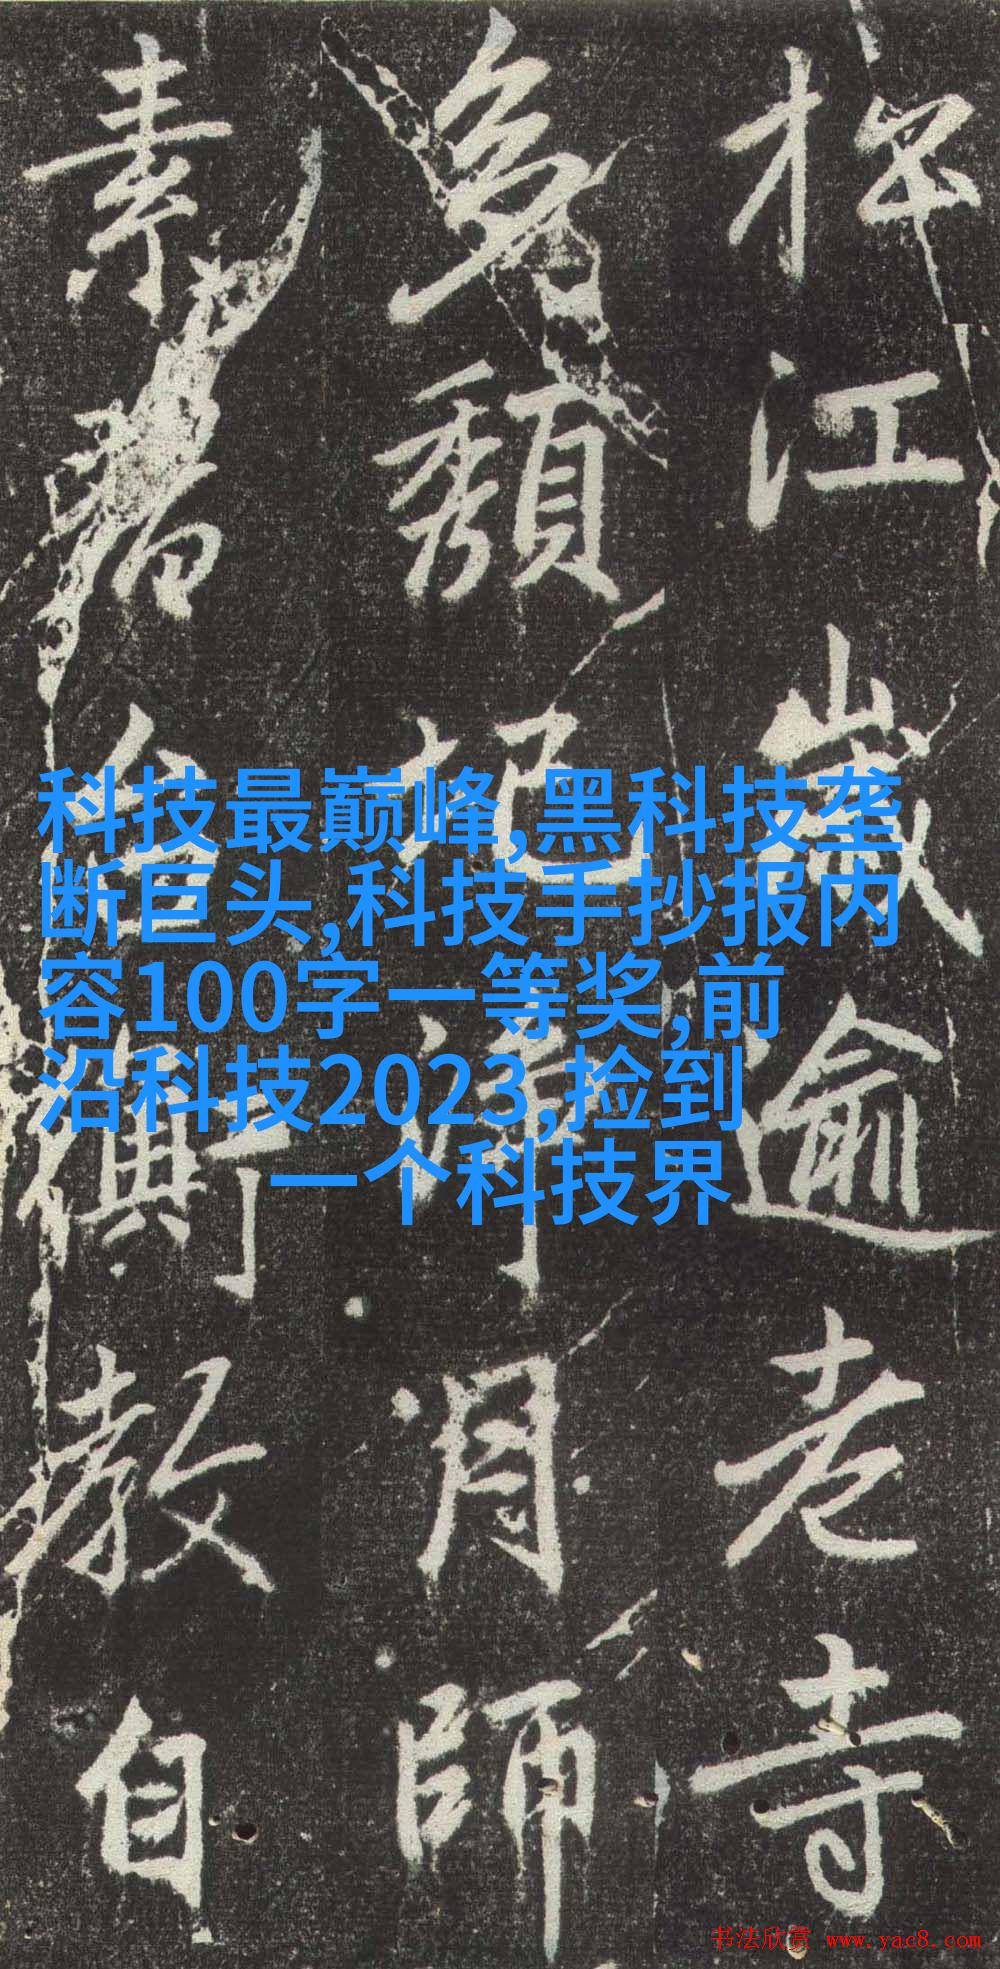 科技最巅峰,黑科技垄
断巨头,科技手抄报内
容100字一等奖,前
沿科技2023,捡到
一个科技界
江歲逾老寺
頹圮月師
素教自
书法欣赏 www.yac8.com